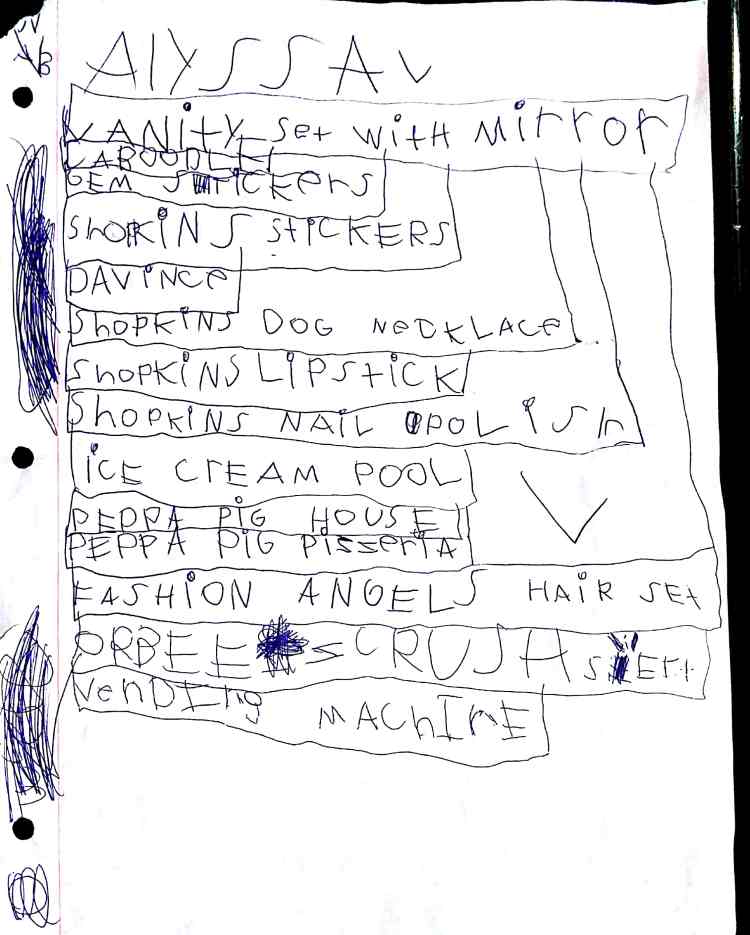 AlYSSA V
VANity set with Mirror
CABOODLE
GEM StICKErs
SHOPKiNS StiCKERS
DAViNCe
SHOPKiNS DOG NeCKLACe
SHOPKiNS LiPStiCK
SHOPKiNS NAiL POLiSh
iCE CrEAM POOL
PEPPA PiG HOUSE
PEPPA PiG PisseriA
FASHiON ANGELS HAiR SEt
ORBEE s CRUSH
VenDing MACHINE